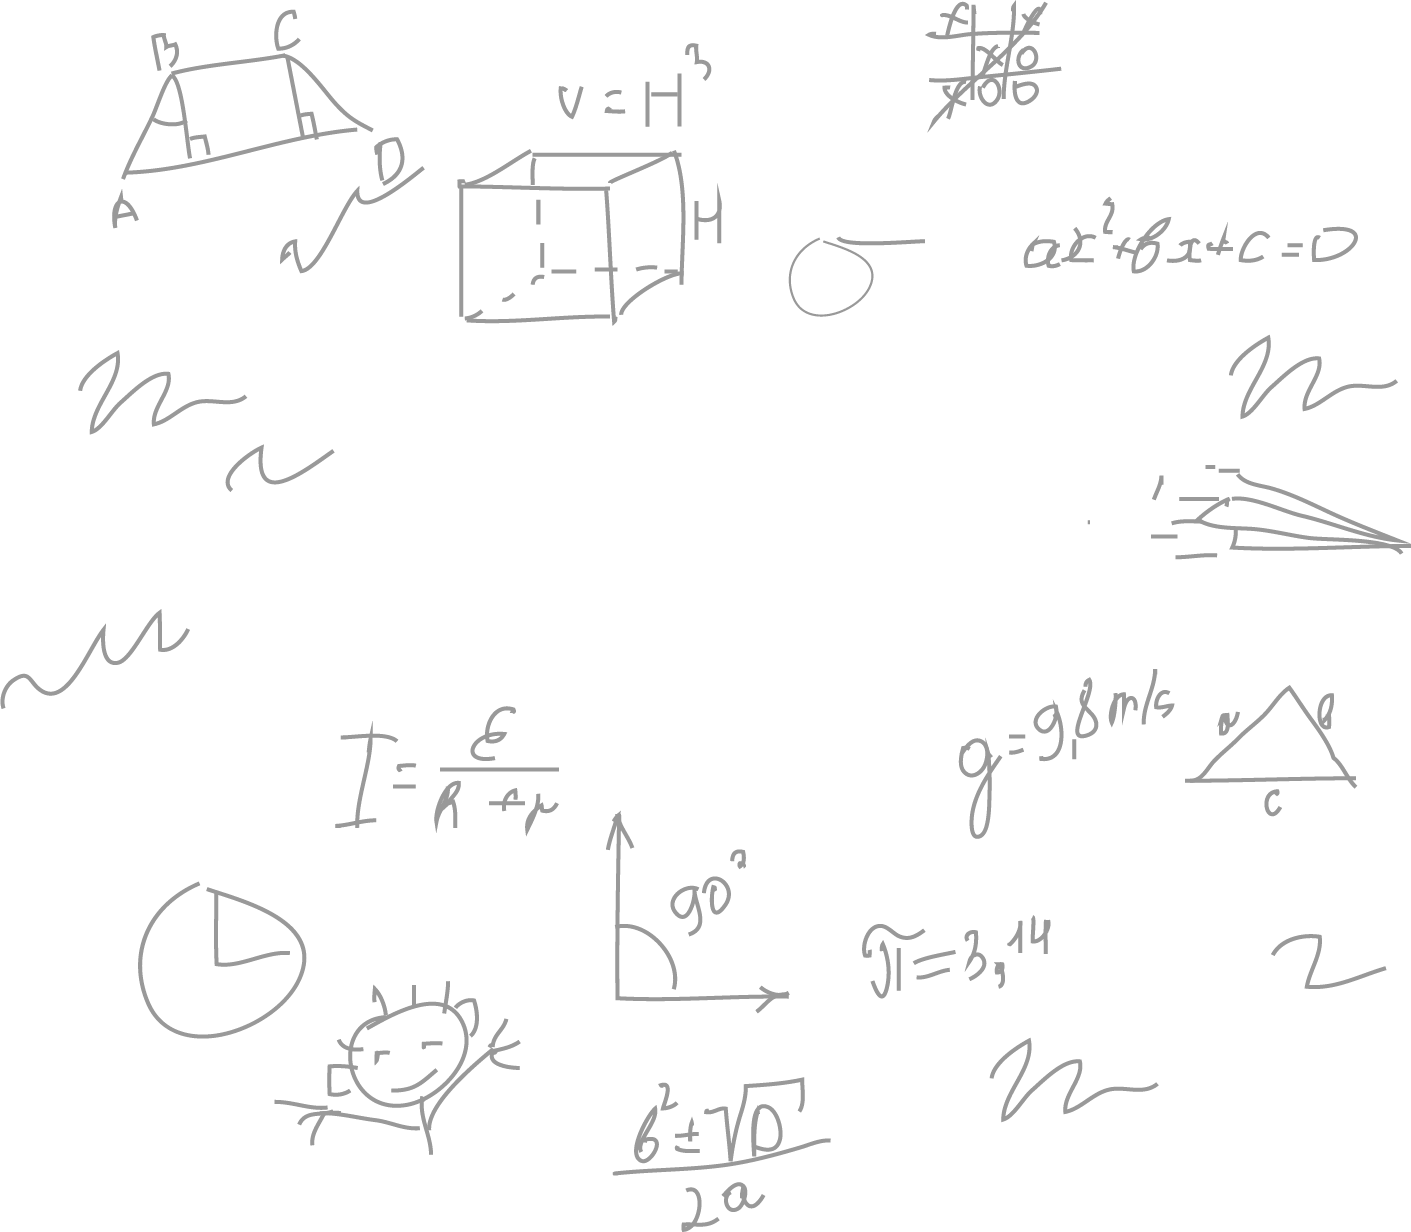 B C
A D
V = H³
H
x x
x 0
x 0 0
ax² + bx + c = 0
I = ε / (R + r)
g = 9,8 m/s
a b
c
90°
π = 3,14
b² ± √D
2a